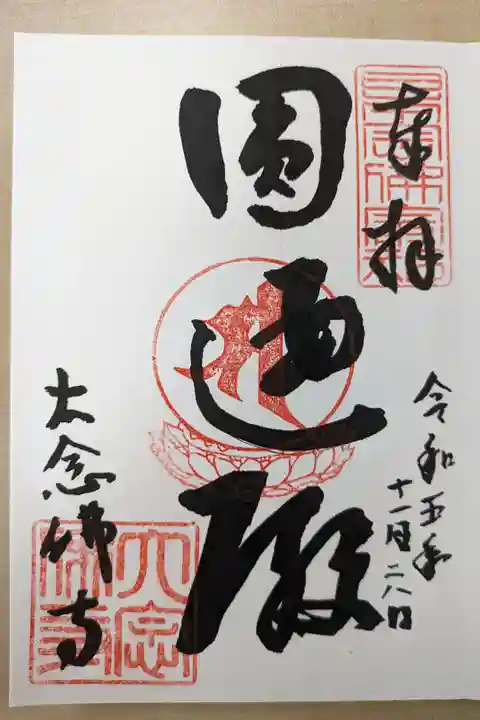 奉拝
令和五年
十一月二八日
圓通殿
大念佛寺
大念
佛寺